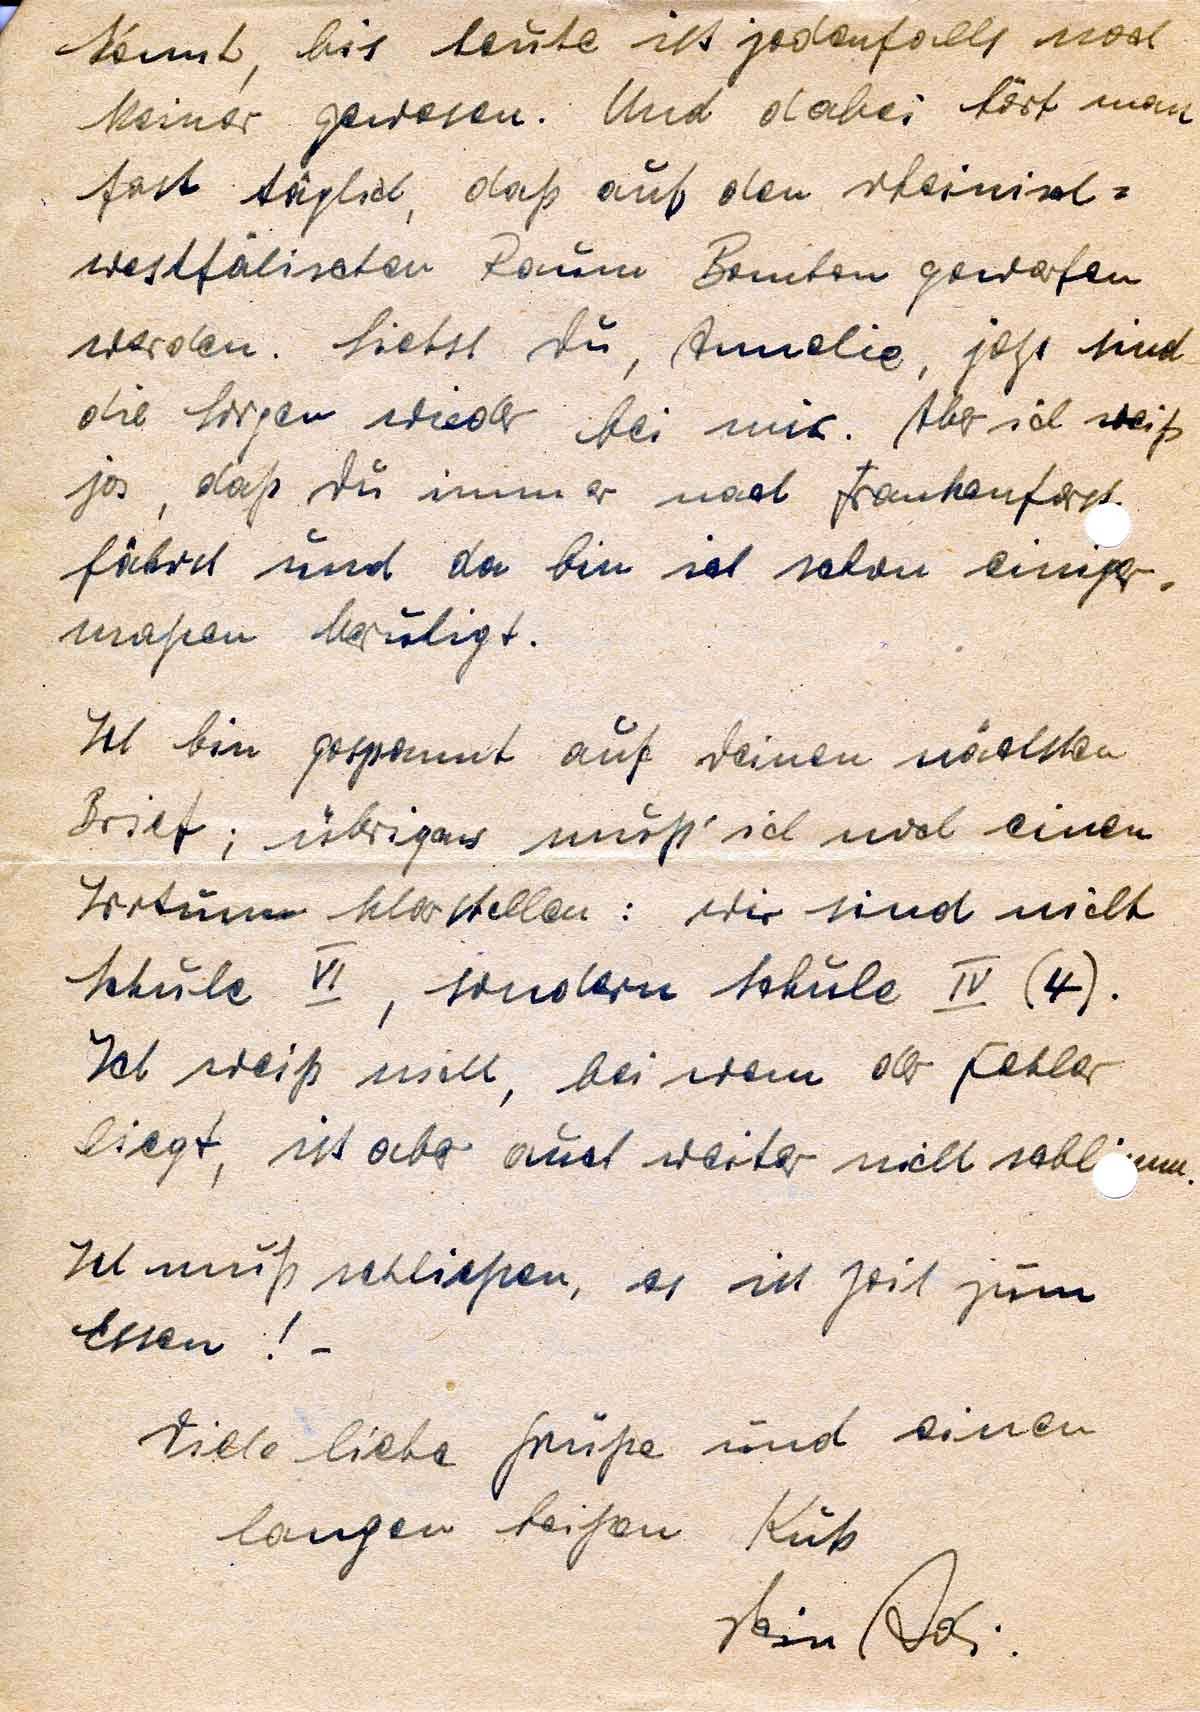 kommt, bis heute ist jedenfalls noch
keiner gewesen. Und dabei hört man
fast täglich, daß auf den rheinisch=
westfälischen Raum Bomben geworfen
werden. Siehst Du, Annelie, jetzt sind
die Sorgen wieder bei mir. Aber ich weiß
ja, daß Du immer nach Frankenforst
fährst und da bin ich schon einiger-
maßen beruhigt.
Ich bin gespannt auf Deinen nächsten
Brief; übrigens muß ich noch einen
Irrtum klarstellen: wir sind nicht
Schule VI, sondern Schule IV (4).
Ich weiß nicht, bei wem der Fehler
liegt, ist aber auch weiter nicht schlimm.
Ich muß schließen, es ist Zeit zum
Essen! -
Viele liebe Grüße und einen
langen heißen Kuß
Dein Adi.